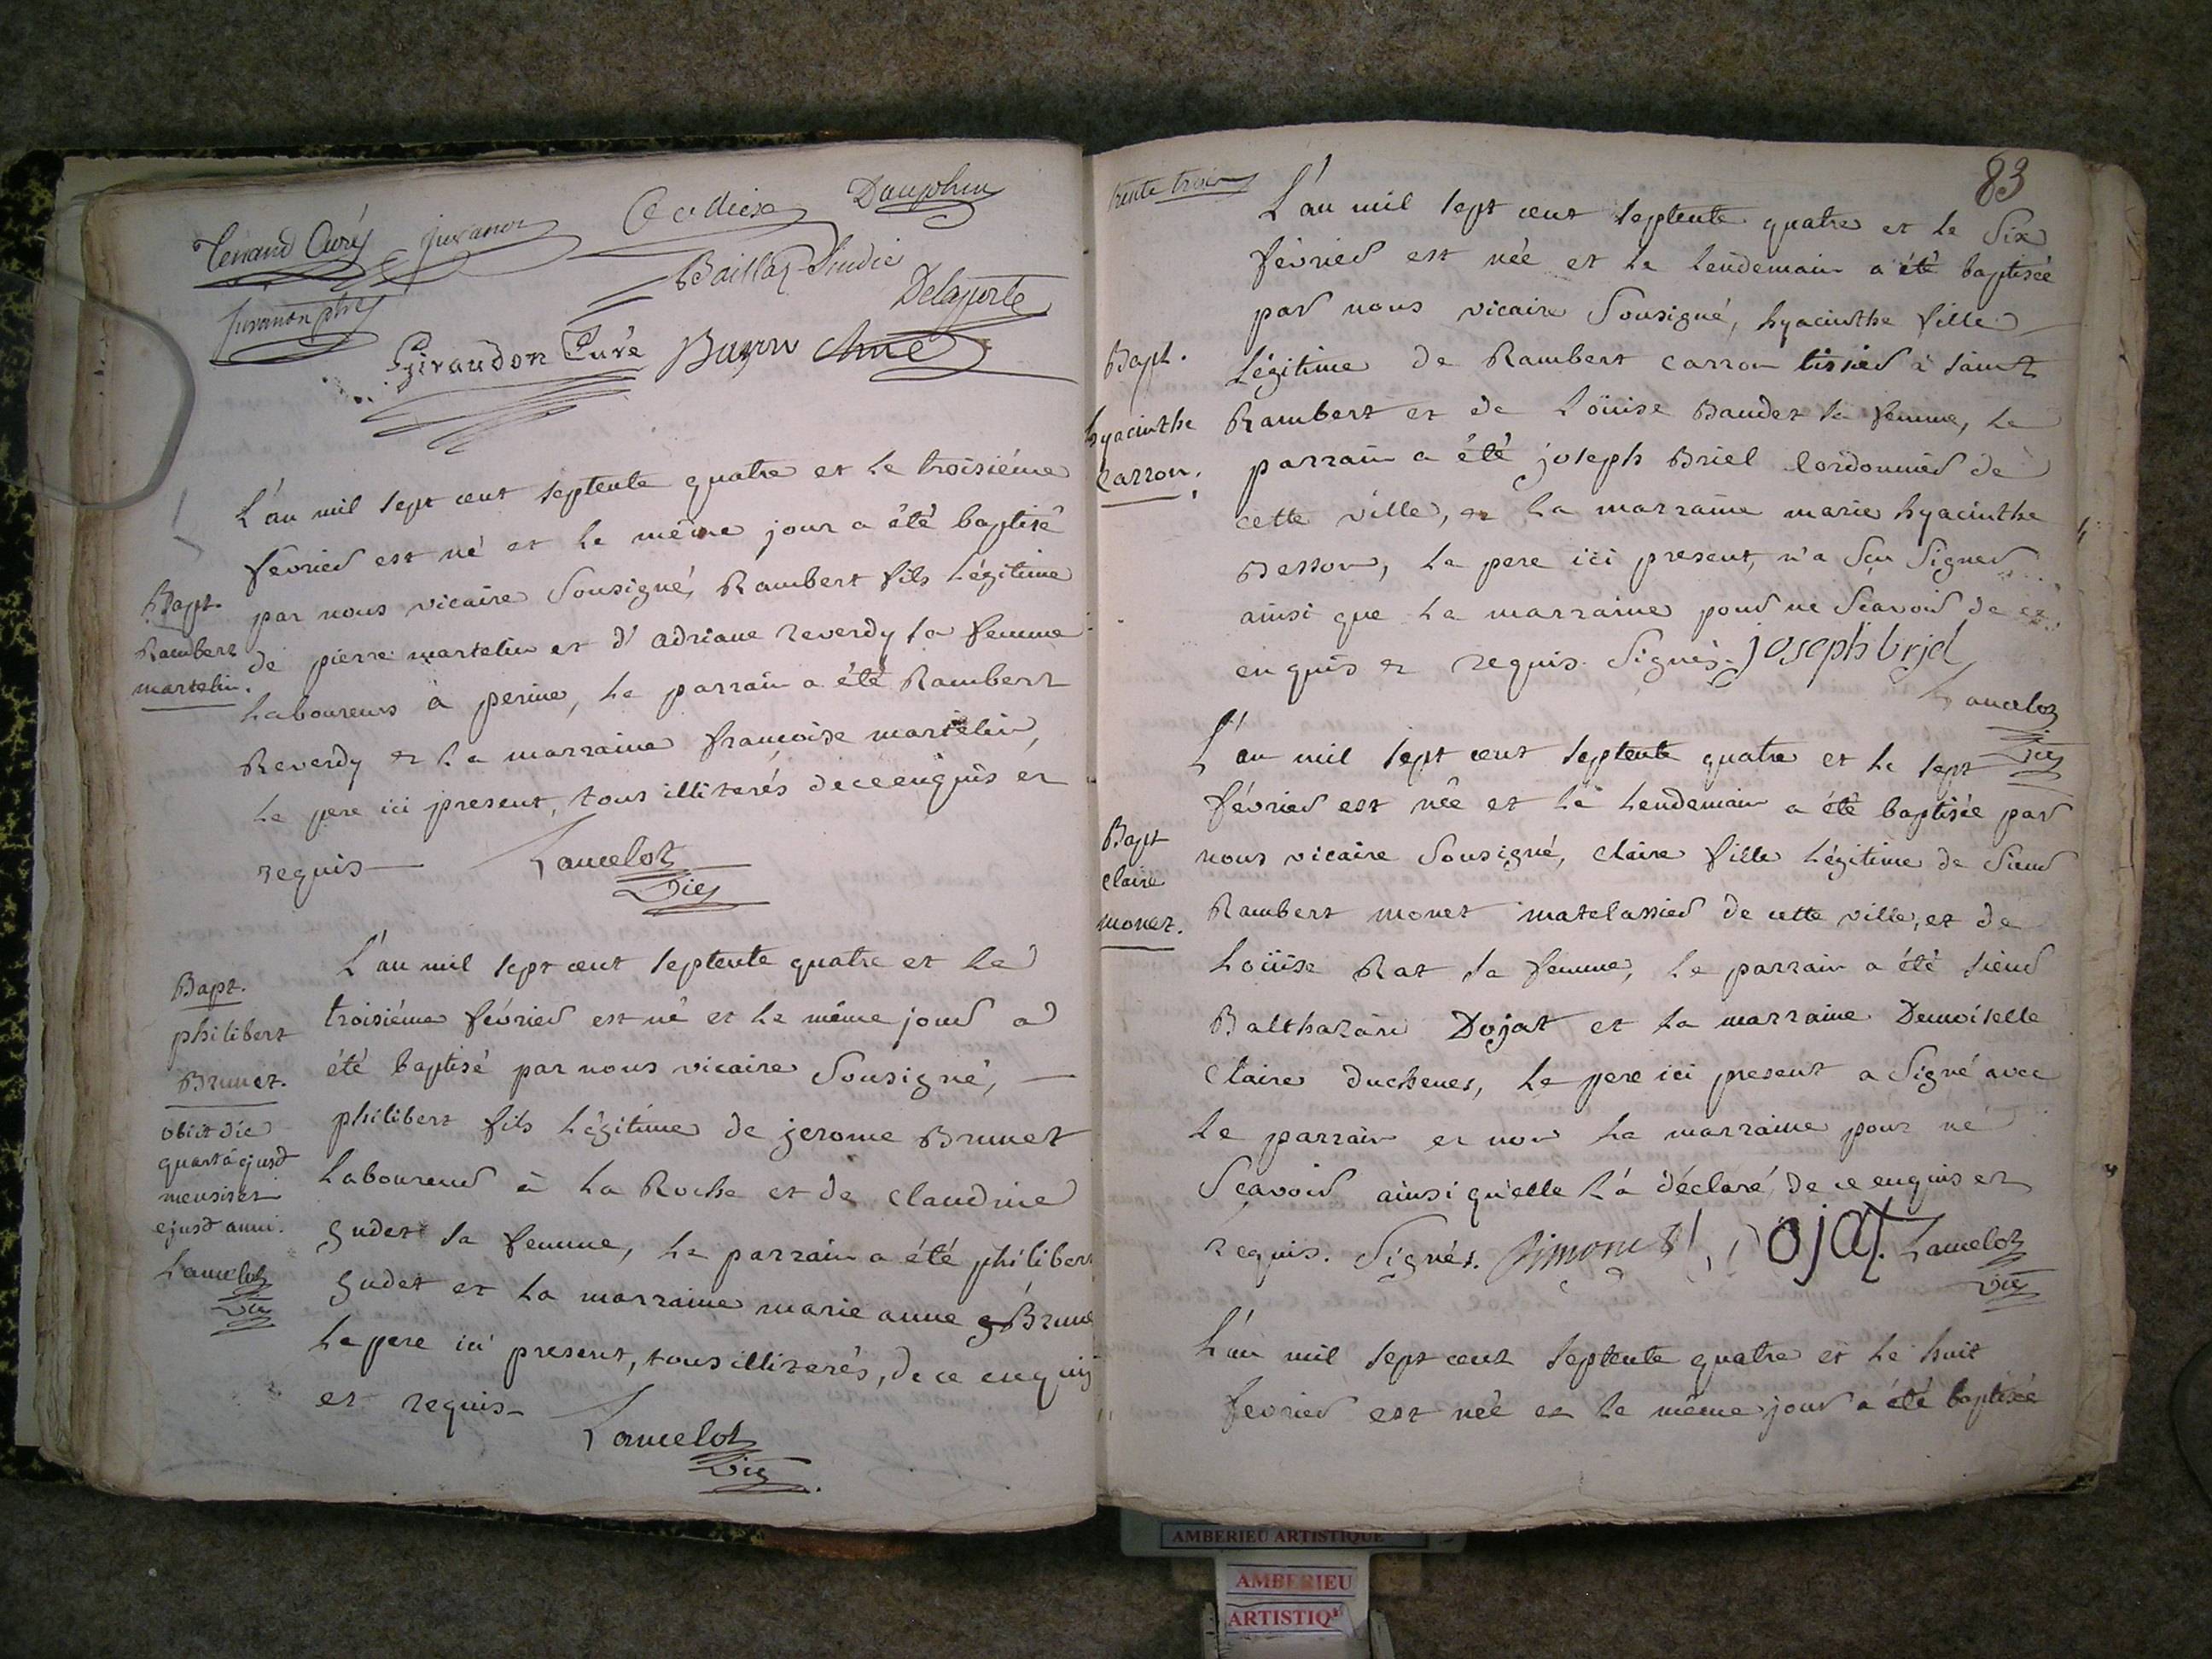 Dauphin
Baillat Sindic
Delaporte
Giraudon Curé
L'an mil sept cent septente quatre et le troisiéme
février est né et le même jour a été baptisé
par nous vicaire sousigné, Rambert fils légitime
de pierre martelin et d'adriane reverdy sa femme
laboureurs à perine, le parrain a été Rambert
Reverdy et la marraine francoise martelin,
le pere ici present, tous illiterés de ce enquis et
requis
Lancelot
Vic
Bapt.
Rambert
martelin.
L'an mil sept cent septente quatre et le
troisiéme février est né et le même jour a
été baptisé par nous vicaire sousigné,
philibert fils légitime de jerome Brunet
laboureur à la Roche et de claudine
gudet sa femme, le parrain a été philibert
gudet et la marraine marie anne Brune
le pere ici present, tous illiterés, de ce enquis
et requis
Lancelot
Vic
Bapt.
philibert
Brunet.
obiit die
quartâ ejusd
mensis et
ejusd anni.
Lancelot
Vic
trente trois
83
L'an mil sept cent septente quatre et le six
février est née et le lendemain a été baptisée
par nous vicaire sousigné, hyacinthe fille
légitime de Rambert carron tissier à saint
Rambert et de Loüise Baudet sa femme, le
parrain a été joseph Briel cordonnier de
cette ville, et la marraine marie hyacinthe
Besson, le pere ici present, n'a sçu signer
ainsi que la marraine pour ne sçavoir de ce
enquis et requis. Signés. joseph brjel
Lancelot
Vic
Bapt.
hyacinthe
Carron.
L'an mil sept cent septente quatre et le sept
février est née et le lendemain a été baptisée par
nous vicaire sousigné, claire fille légitime de sieur
Rambert monet matelassier de cette ville, et de
Loüise Rat sa femme, le parrain a été sieur
Balthazard Dojat et la marraine Demoiselle
Claire duchenes, le pere ici present a signé avec
le parrain et non la marraine pour ne
sçavoir ainsi qu'elle l'a déclaré, de ce enquis et
requis. Signés. Dojat. Lancelot
Vic
Bapt
claire
monet.
L'an mil sept cent septente quatre et le huit
fevrier est née et le même jour a été baptisée
AMBERIEU ARTISTIQUE
AMBERIEU
ARTISTIQ